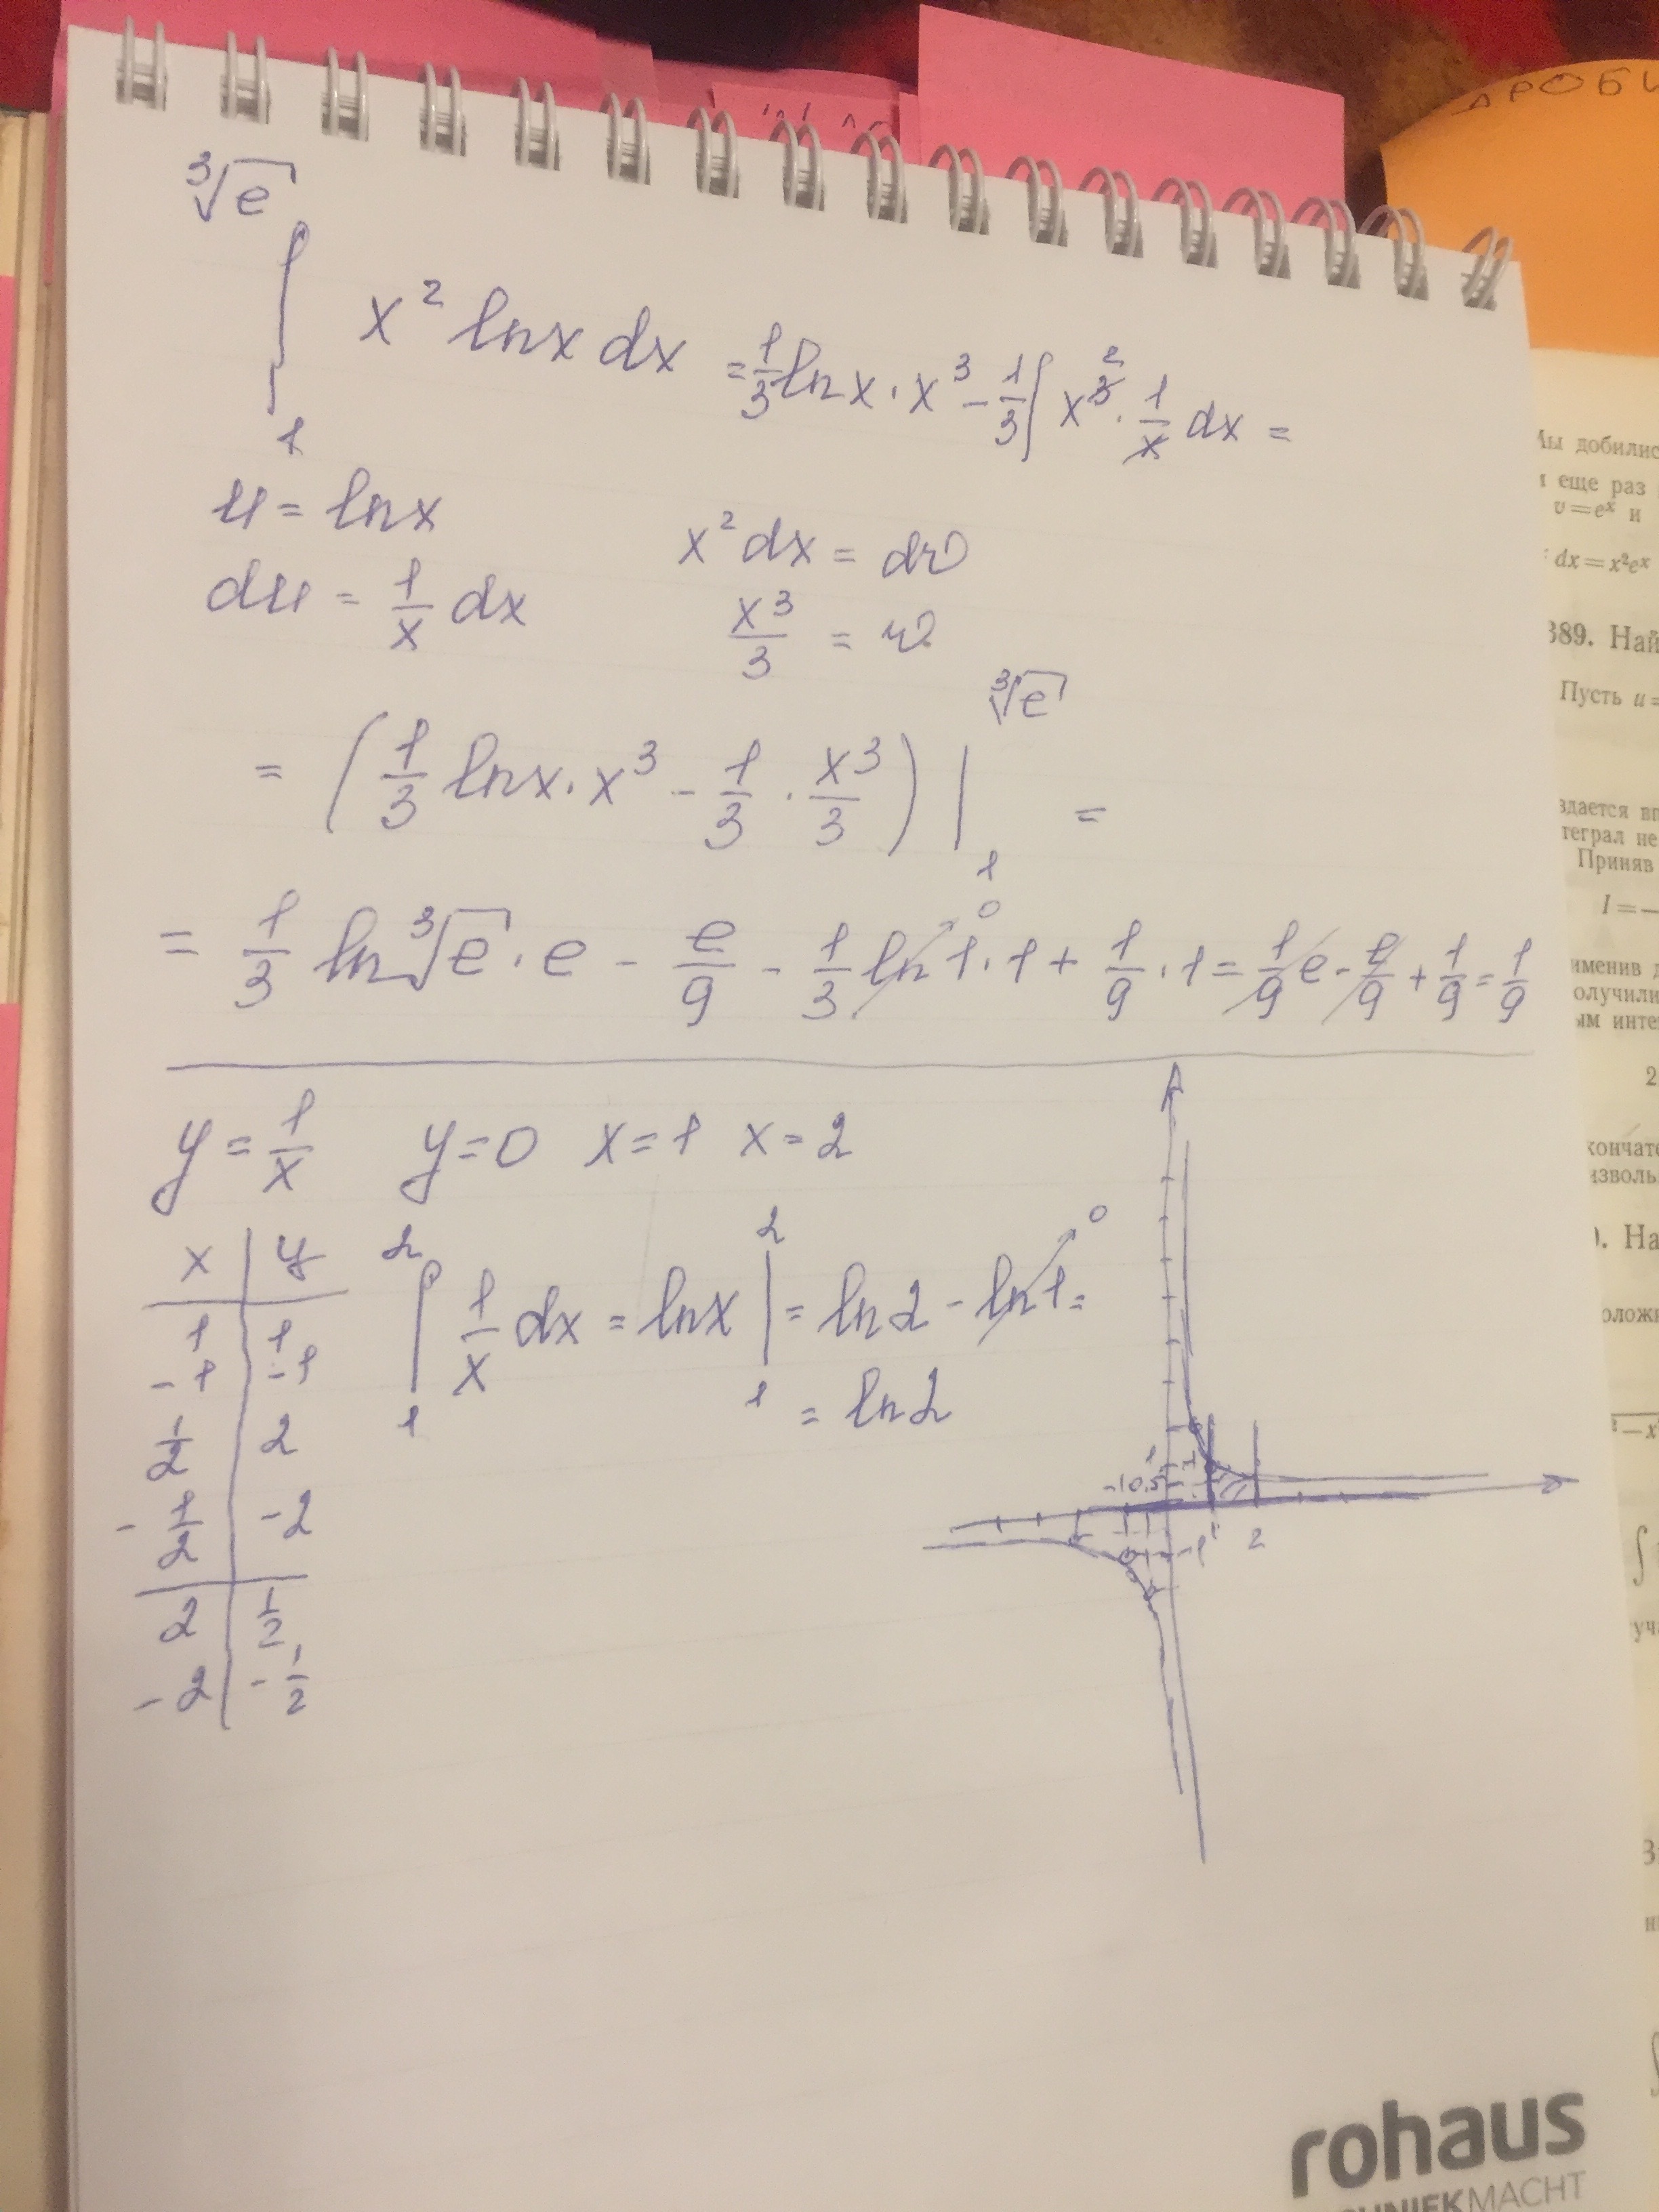 ДРОБИ
∛e
∫ x² lnx dx = 1/3 lnx · x³ - 1/3 ∫ x² · 1/x dx =
1
u = lnx
x² dx = dv
du = 1/x dx
x³/3 = v
= (1/3 lnx · x³ - 1/3 · x³/3) |₁^∛e =
= 1/3 ln∛e · e - e/9 - 1/3 ln1 · 1 + 1/9 · 1 = 1/9 e - e/9 + 1/9 = 1/9
0
y = 1/x y = 0 x = 1 x = 2
x | y
1 | 1
-1 | -1
1/2 | 2
-1/2 | -2
2 | 1/2
-2 | -1/2
∫₁² 1/x dx = lnx |₁² = ln2 - ln1 =
0
= ln2
1
0,5
-1
1
2
Мы добилис
и еще раз
v = eˣ и
dx = x²eˣ
389. Най
Пусть u =
здается вп
теграл не
Приняв
I = —
именив
олучили
ым инте
2
кончате
извол
). На
оложи
— x
∫
уч
rohaus
MACHT